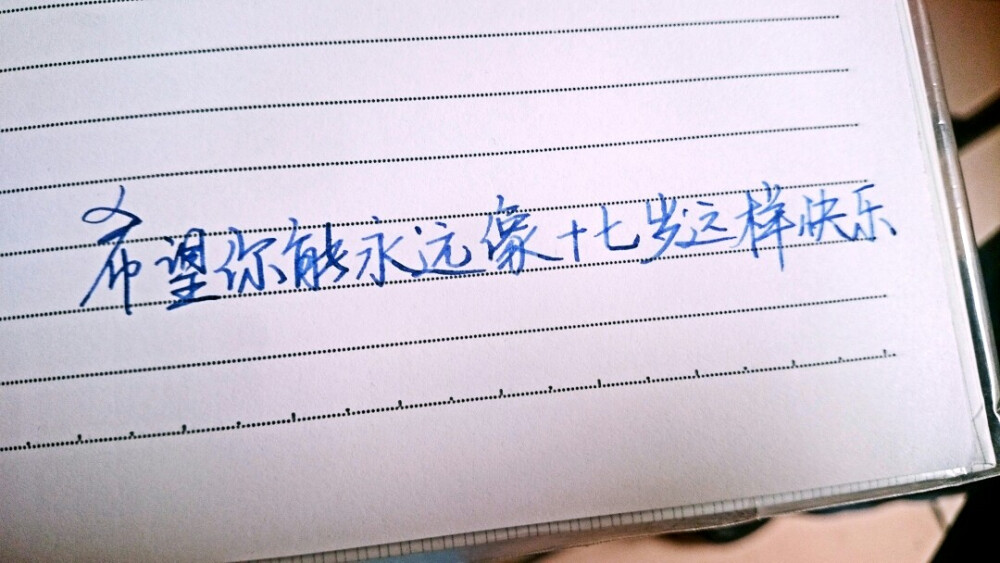 希望你能永远像十七岁这样快乐